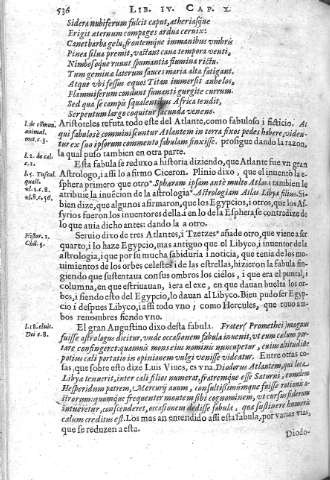 536 LIB. IV. CAP. X.
Sidera nubiferum fulcit caput, atheriasque
Erigit aternum compages ardua ceruix:
Canet barba gelu, frontemque immanibus vmbris
Pinea silua premit, vastant caua tempora venti,
Nimbosoque ruunt spumantia flumina rictu.
Tum geminæ laterum fauces maria alta fatigant.
Atque vbi fessus equos Titan immersit anhelos,
Flammiferum condunt fumanti gurgite currum.
Sed qua se campis squalentibus Africa tendit,
Serpentum largo coquitur fœcunda veneno.
Aristoteles refuta todo este del Atlante, como fabuloso i ficticio. At
qui fabulosè comminiscuntur Atlantem in terra fixos pedes habere, viden-
tur ex sua ipsorum commenta fabulam finxisse. prosigue dando la razon,
la qual puso tambien en otra parte.
Esta fabula se reduxo a historia diziendo, que Atlante fue vn gran
Astrologo, i assi lo afirma Ciceron. Plinio dixo, que el inuentò la es-
phera primero que otro: Sphæram ipsam ante multo Atlas: tambien le
atribuie la inuecion de la astrologia: Astrologiam Atlas Libyæ filius. Si
bien dize, que algunos afirmaron, que los Egypcios, i otros, que los As-
syrios fueron los inuentores della: i en lo de la Esphera se contradize de
lo que auia dicho antes: dando la a otro.
Seruio dize de tres Atlantes, i Tzetzes añade otro, que viene a ser
quarto, i lo haze Egypcio, mas antiguo que el Libyco, i inuentor de la
astrologia, i que por su mucha sabiduria i noticia, que tenia de los mo-
uimientos de los orbes celestes i de las estrellas, hizieron la fabula fin-
giendo que sustentaua con sus ombros los cielos, i que era el puntal, i
columna, en que estriuauan, i era el exe, en que dauan buelta los or-
bes, i siendo esto del Egypcio, lo dauan al Libyco. Bien pudo ser Egyp-
cio i despues Libyco, i assi todo vno; como Hercules, que con am-
bos renombres siendo vno.
El gran Augustino dixo desta fabula. Frater Promethei magnus
fuisse astrologus dicitur, vnde occasionem fabula inuenit, vt eum cœlum por-
tare confingeret: quamuis mons eius nomine nuncupetur, cuius altitudine
potius cæli portatio in opinionem vulgi venisse videatur. Entre otras co-
sas, que sobre esto dize Luis Viues, es vna. Diodorus Atlantem, qui loca
Libyæ tenuerit, inter cæli filios numerat, fratremque esse Saturni,
Hesperidum patrem,
calum creditus est. Los mas an entendido assi esta fabula, por varias vias,
que se reduzen a esta.
Diodo-